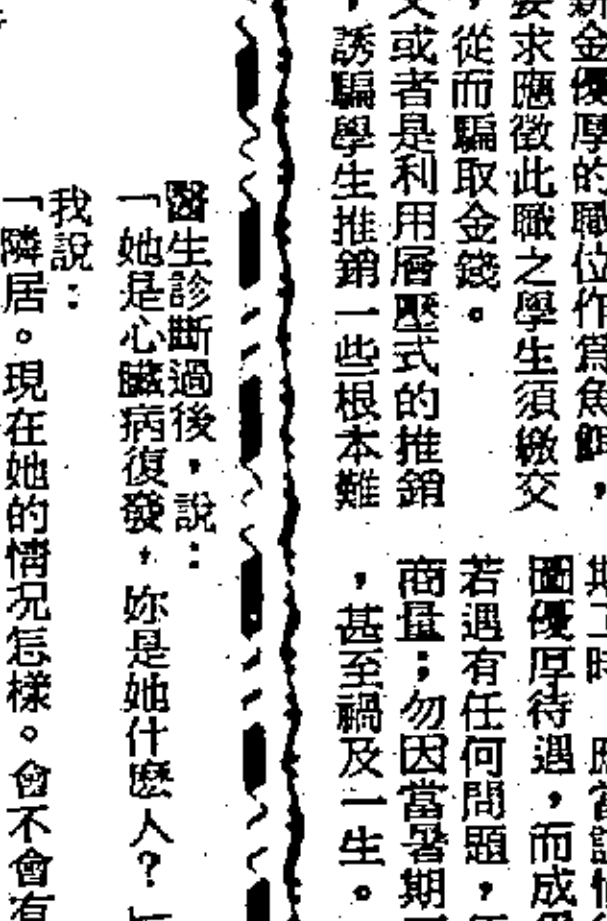 薪金優厚的職位作為魚餌，
要求應徵此職之學生須繳交
，從而騙取金錢。
或者是利用層壓式的推銷
，誘騙學生推銷一些根本難
期工時
圖優厚待遇，而成
若遇有任何問題，
商量；勿因當暑期
，甚至禍及一生。
醫生診斷過後，說：
「她是心臟病復發，妳是她什麼人？
我說：
「隣居。現在她的情况怎樣。會不會有